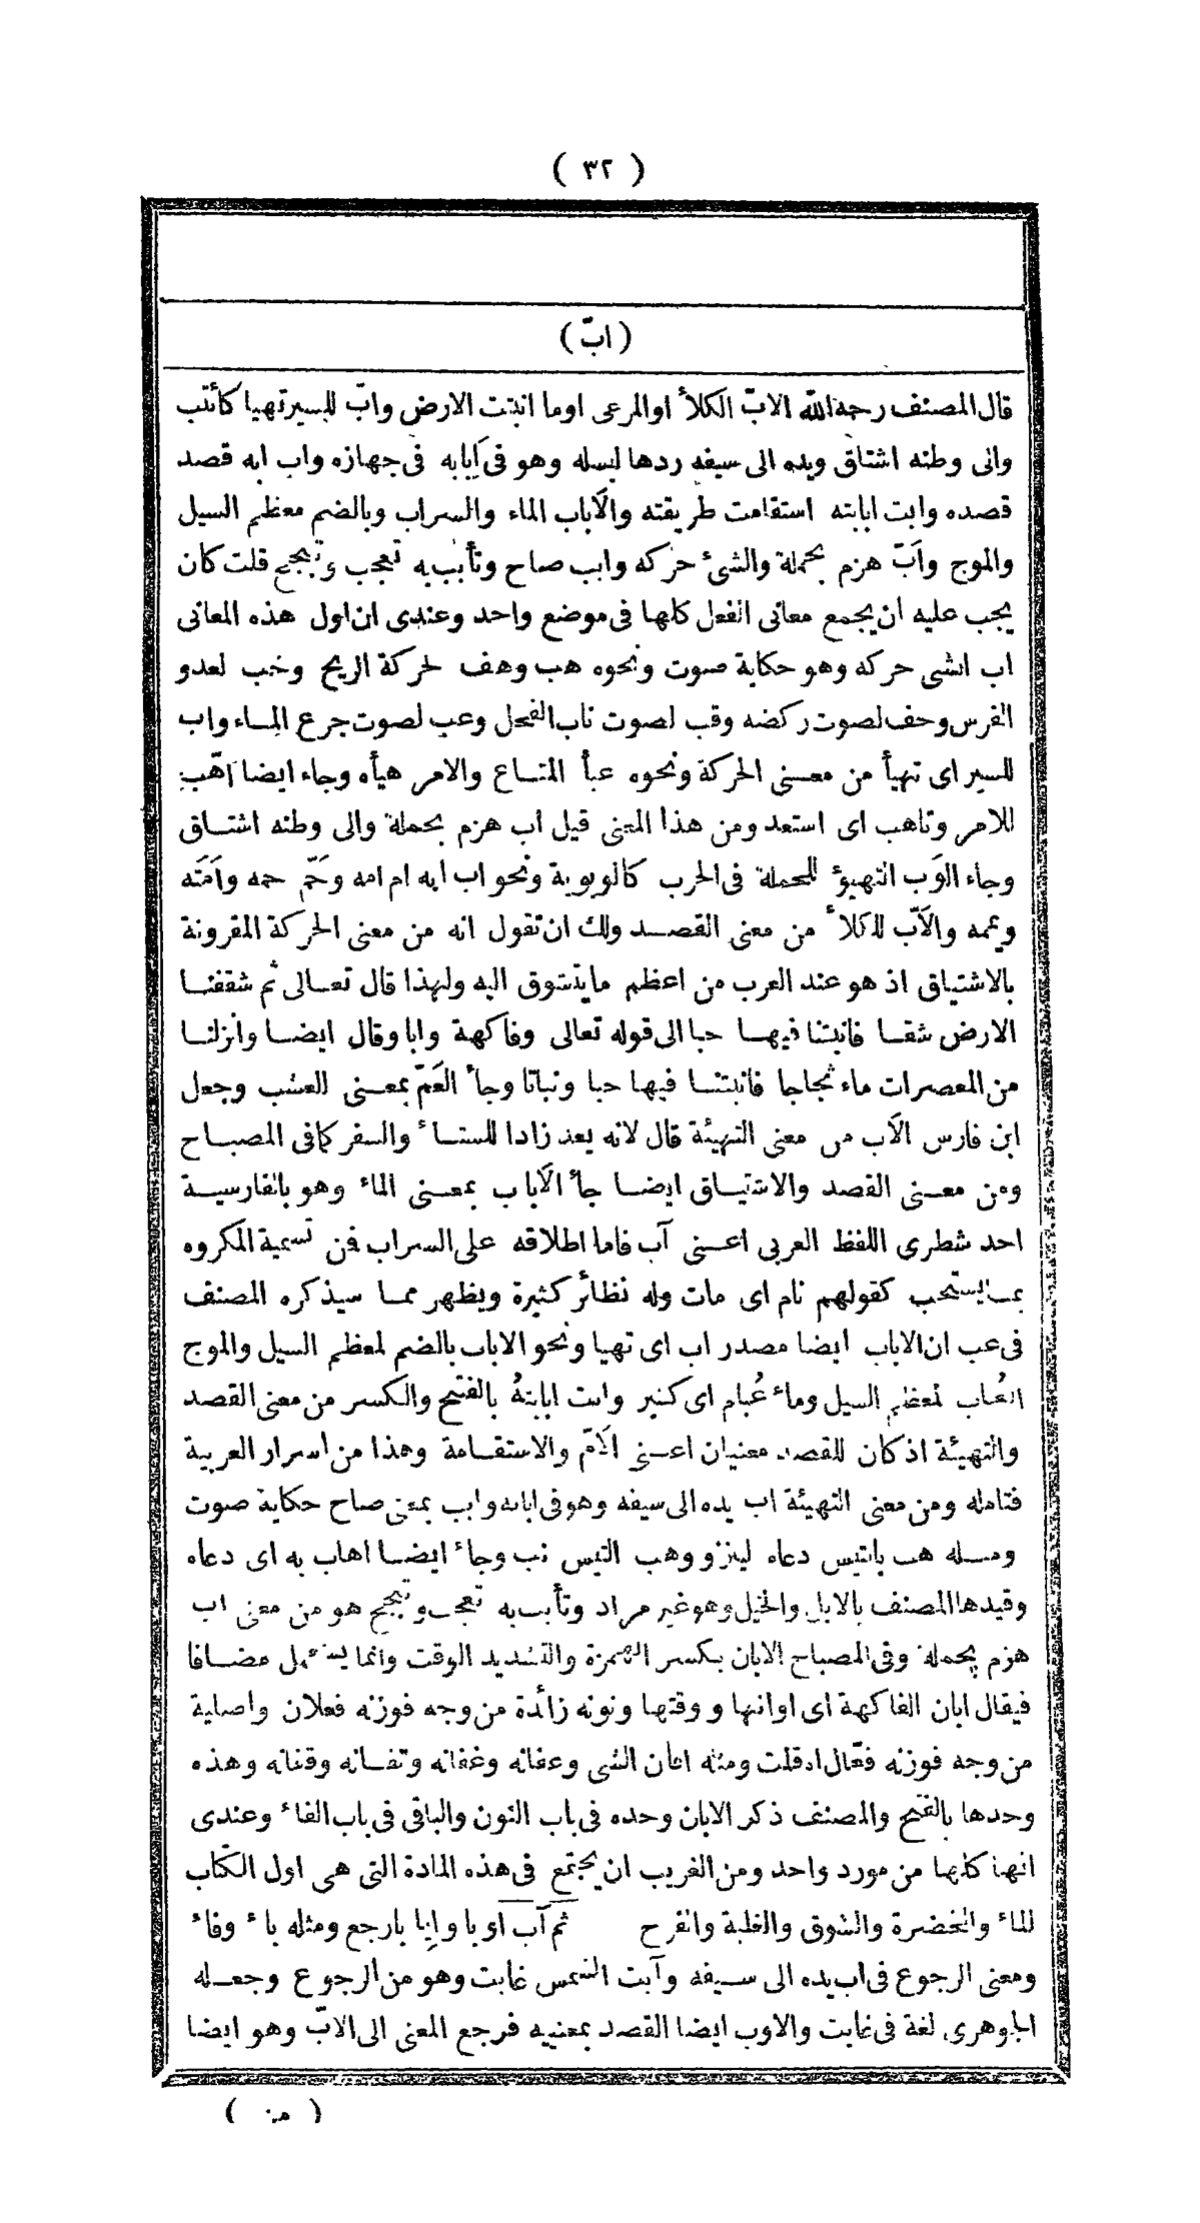 ( ٣٢ )
( ابّ )
قال المصنف رحمه الله الابّ الكلأ او المرعى او ما انبتت الارض وابّ للسير تهيا كأتب
والى وطنه اشتاق ويده الى سيفه ردها ليسله وهو فى اَبابه فى جهازه واب ابه قصد
قصده وابت ابابته استقامت طريقته والاَباب الماء والسراب وبالضم معظم السيل
والموج واَبّ هزم بحملة والشئ حركه واب صاح وتأبب به تعجب وتبجح قلت كان
يجب عليه ان يجمع معانى الفعل كلها فى موضع واحد وعندى ان اول هذه المعانى
اب الشى حركه وهو حكاية صوت ونحوه هب وهف لحركة الريح وخب لعدو
الفرس وحف لصوت ركضه وقب لصوت ناب الفحل وعب لصوت جرع المـاء واب
للسير اى تهيأ من معـنى الحركة ونحوه عبأ المتـاع والامر هيأه وجاء ايضا اهّب
للامر وتاهب اى استعد ومن هذا المعنى قيل اب هزم بحملة والى وطنه اشتـاق
وجاء الوَب التهيؤ للحملة فى الحرب كالوبوبة ونحو اب ابه ام امه وحَمّ حمه واَمَته
ويممه والاَبّ للكلأ من معنى القصـد ولك ان تقول انه من معنى الحركة المقرونة
بالاشتياق اذ هو عند العرب من اعظم ما يتشوق اليه ولهذا قال تعـالى ثم شققنـا
الارض شقـا فانبتنا فيهـا حبا الى قوله تعالى وفاكهة وابا وقال ايضـا وانزلنـا
من المعصرات ماء ثجاجا فانبتنـا فيها حبا ونباتا وجأ العَمّ بمعـنى العشب وجعل
ابن فارس الاَب من معنى التهيئة قال لانه يعد زادا للشتـاء والسفر كما فى المصبـاح
ومن معـنى القصد والاشتيـاق ايضـا جأ الاَباب بمعـنى الماء وهو بالفارسيـة
احد شطرى اللفظ العربى اعـنى آب فاما اطلاقه على السراب فن تسمية المكروه
بمـا يستحب كقولهم نام اى مات وله نظائر كثيرة ويظهر ممـا سيذكره المصنف
فى عب ان الاباب ايضا مصدر اب اى تهيا ونحو الاباب بالضم لمعظم السيل والموج
العُباب لمعظم السيل وماء عُبام اى كثير وابت ابابتهُ بالفتح والكسر من معنى القصد
والتهيئة اذ كان للقصد معنيان اعـنى الاَمّ والاستقـامة وهذا من اسرار العربية
فتامله ومن معنى التهيئة اب يده الى سيفه وهو فى ابابه واب بمعنى صاح حكاية صوت
ومثـله هب بالتيس دعاه لينزو وهب التيس نب وجاء ايضـا اهاب به اى دعاه
وقيدها المصنف بالابل والخيل وهو غير مراد وتأبب به تعجب وتبجح هو من معنى اب
هزم بحملة وفى المصباح الابان بكسر الهمزة والتشديد الوقت وانما يستعمل مضـافا
فيقال ابان الفاكهة اى اوانها و وقتها ونونه زائدة من وجه فوزنه فعلان واصلية
من وجه فوزنه فعّال اد قلت ومثله افان الشى وعفانه وغفانه وتفـانه وقفانه وهذه
وحدها بالفتح والمصنف ذكر الابان وحده فى باب النون والباقى فى باب الفاء وعندى
انها كلها من مورد واحد ومن الغريب ان يجتمع فى هذه المادة التى هى اول الكتاب
للماء والخضرة والشوق والغلبة والفرح ثم آب اوبا وايابا رجع ومثله باء وفاء
ومعنى الرجوع فى اب يده الى سـيفه وآبت الشمس غابت وهو من الرجوع وجعـله
الجوهرى لغة فى غابت والاوب ايضا القصد بمعنييه فرجع المعنى الى الابّ وهو ايضا
( من )